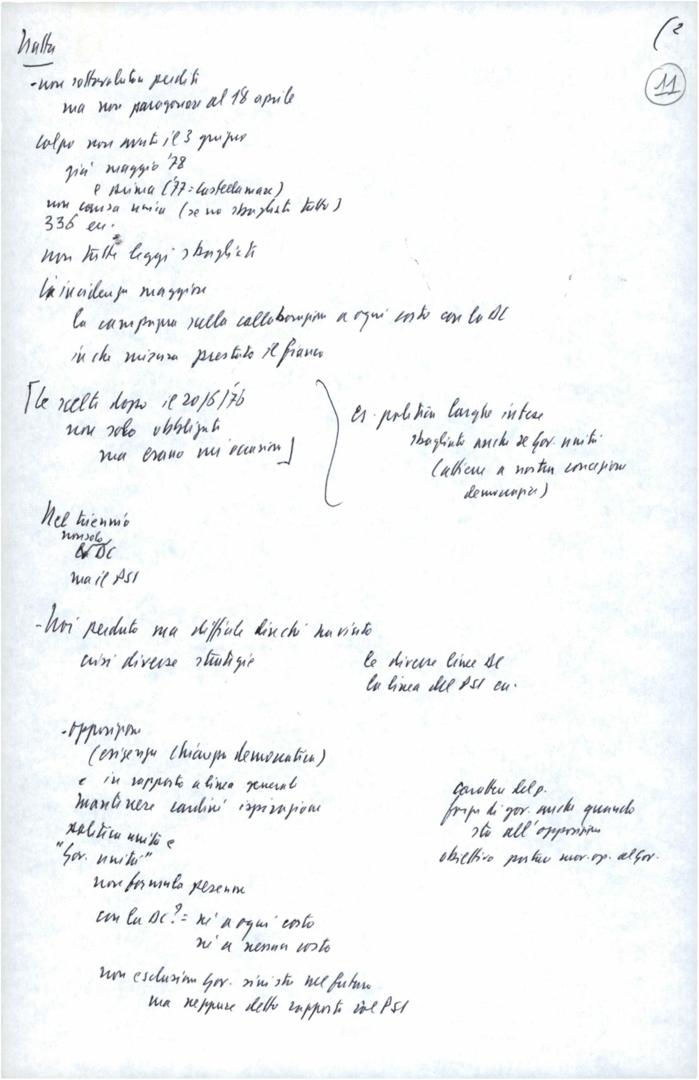 (2
11
Natta
- non sottovalutare perdite
ma non paragonare al 18 aprile
colpo non avuto il 3 giugno
già maggio '78
e prima ('77 = Castellamare)
non causa unica (se no sbagliato tutto)
336 ecc.
non tutte leggi sbagliate
incidenza maggiore
la campagna sulla collaborazione a ogni costo con la DC
in che misura prestato il fianco
[le scelte dopo il 20/6/76
non solo obbligate
ma erano un'occasione]
es. politica larghe intese
sbagliato anche se Gov. unità
(attiene a nostra concezione
democrazia)
Nel triennio
non solo
DC
ma il PSI
- Noi perduto ma difficile dire chi ha vinto
crisi diverse strategie
le diverse linee DC
la linea del PSI ecc.
- opposizione
(esigenza chiarezza democratica)
e in rapporto a linea generale
mantenere cardini ispirazione
politica unità e
"Gov. unità"
carattere del p.
forza di gov. anche quando
sta all'opposizione
obiettivo portare mov. op. al Gov.
non formula perenne
con la DC? = né a ogni costo
né a nessun costo
non esclusione Gov. sinistra nel futuro
ma neppure dello rapporto col PSI